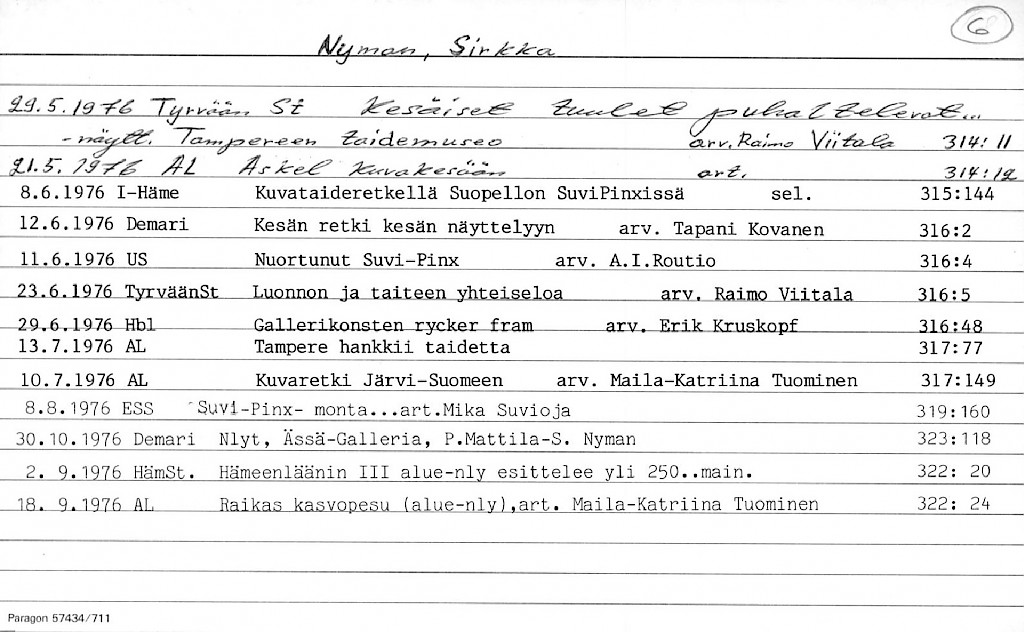 6
Nyman, Sirkka
29.5.1976 Tyrvään St Kesäiset tuulet puhaltelevat...
-näytt. Tampereen taidemuseo arv. Raimo Viitala 314:11
21.5.1976 AL Askel kuvakesään art. 314:12
8.6.1976 I-Häme Kuvataideretkellä Suopellon SuviPinxissä sel. 315:144
12.6.1976 Demari Kesän retki kesän näyttelyyn arv. Tapani Kovanen 316:2
11.6.1976 US Nuortunut Suvi-Pinx arv. A.I.Routio 316:4
23.6.1976 TyrväänSt Luonnon ja taiteen yhteiseloa arv. Raimo Viitala 316:5
29.6.1976 Hbl Gallerikonsten rycker fram arv. Erik Kruskopf 316:48
13.7.1976 AL Tampere hankkii taidetta 317:77
10.7.1976 AL Kuvaretki Järvi-Suomeen arv. Maila-Katriina Tuominen 317:149
8.8.1976 ESS Suvi-Pinx- monta...art.Mika Suvioja 319:160
30.10.1976 Demari Nlyt, Ässä-Galleria, P.Mattila-S. Nyman 323:118
2. 9.1976 HämSt. Hämeenläänin III alue-nly esittelee yli 250..main. 322: 20
18. 9.1976 AL Raikas kasvopesu (alue-nly),art. Maila-Katriina Tuominen 322: 24
Paragon 57434/711